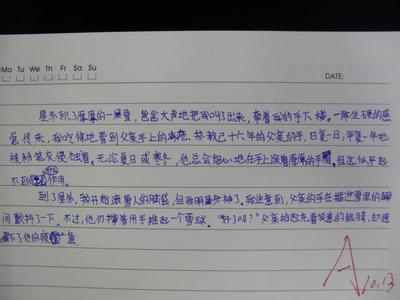 Mo Tu We Th Fr Sa Su
DATE:
屋外积了厚厚的一层雪,爸爸大声地把我叫出来,牵着我的手下楼。一阵生硬的感
觉传来,我吃惊地看到父亲手上的
十六年的父亲的手,日复一日,年复一年地
被粉笔灰侵蚀着。无论夏日或寒冬,他总会细心地在手上涂着厚厚的手
但这似乎起
不到 作用。
到了屋外,我开始滚雪人的脑袋,但我明显分神了。我注意到,父亲的手在插进雪里的瞬
间颤抖了一下。不过,他仍撑着用手堆起一个雪球。"好了吗?"父亲抬起充着笑意的眼睛,却遮
不了他的
A
10.13